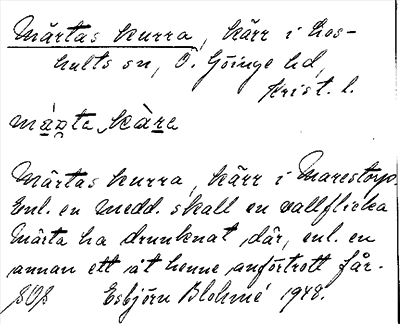 Märtas kurra, kärr i Los-
hults sn, Ö. Göinge hd,
Krist. l.
Märtas kurra, kärr i Marestorp.
Enl. en medd. skall en vallflicka
Märta ha drunknat där, enl. en
annan ett åt henne anförtrott får.
Esbjörn Blohmé 1948.